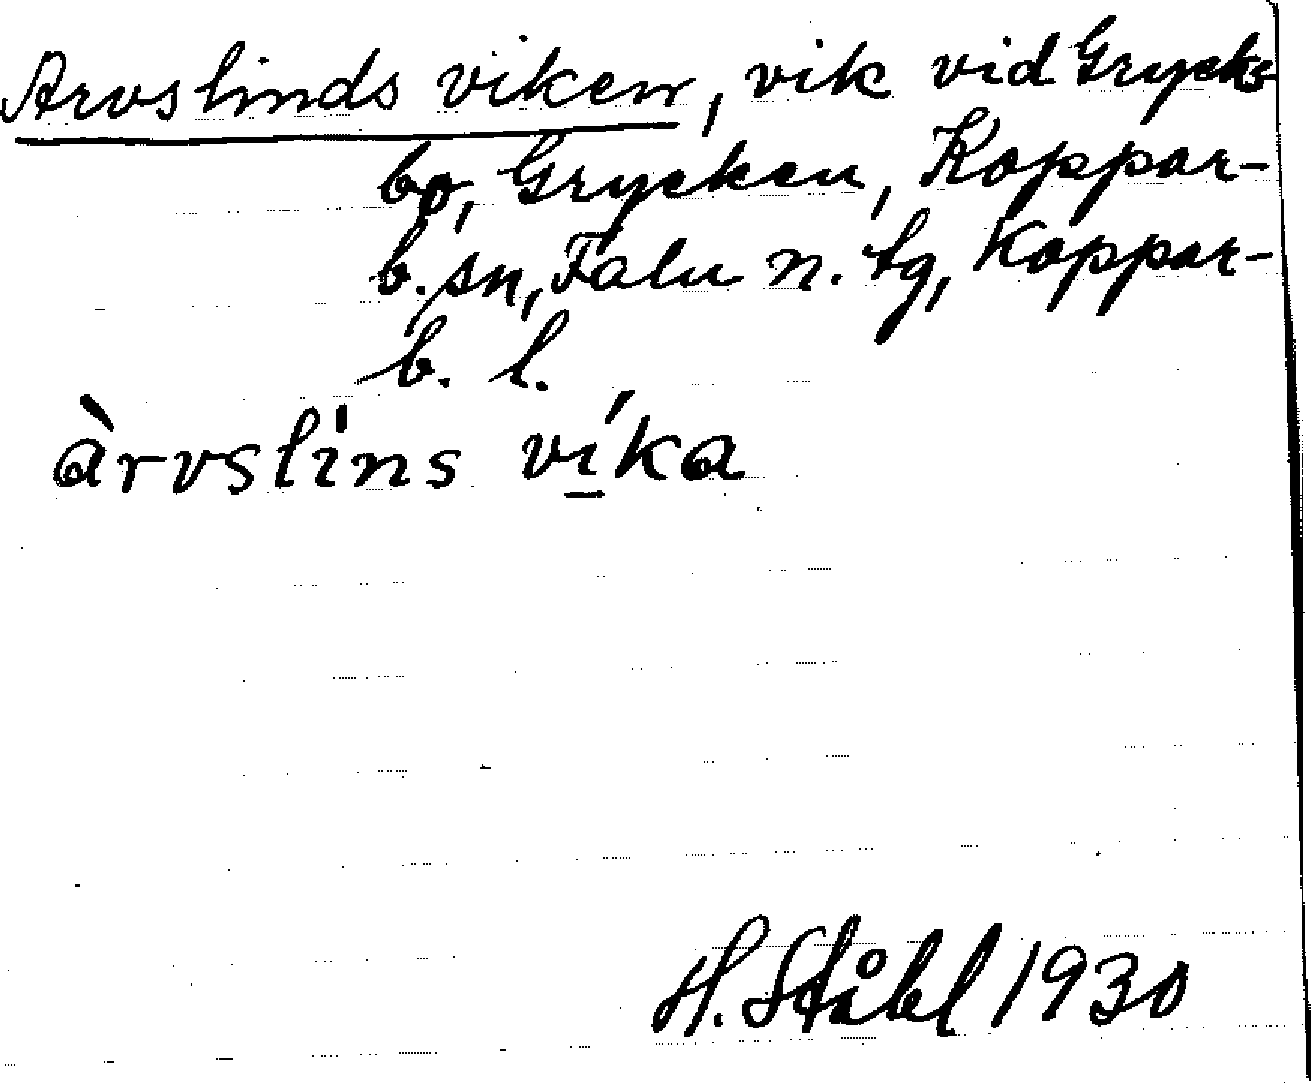 Arvslinds viken, vik vid Grycks-
bo, Grycken, Koppar-
b. sn, Falu n. tg, Koppar-
b. l.
àrvslins víka
H. Ståhl 1930